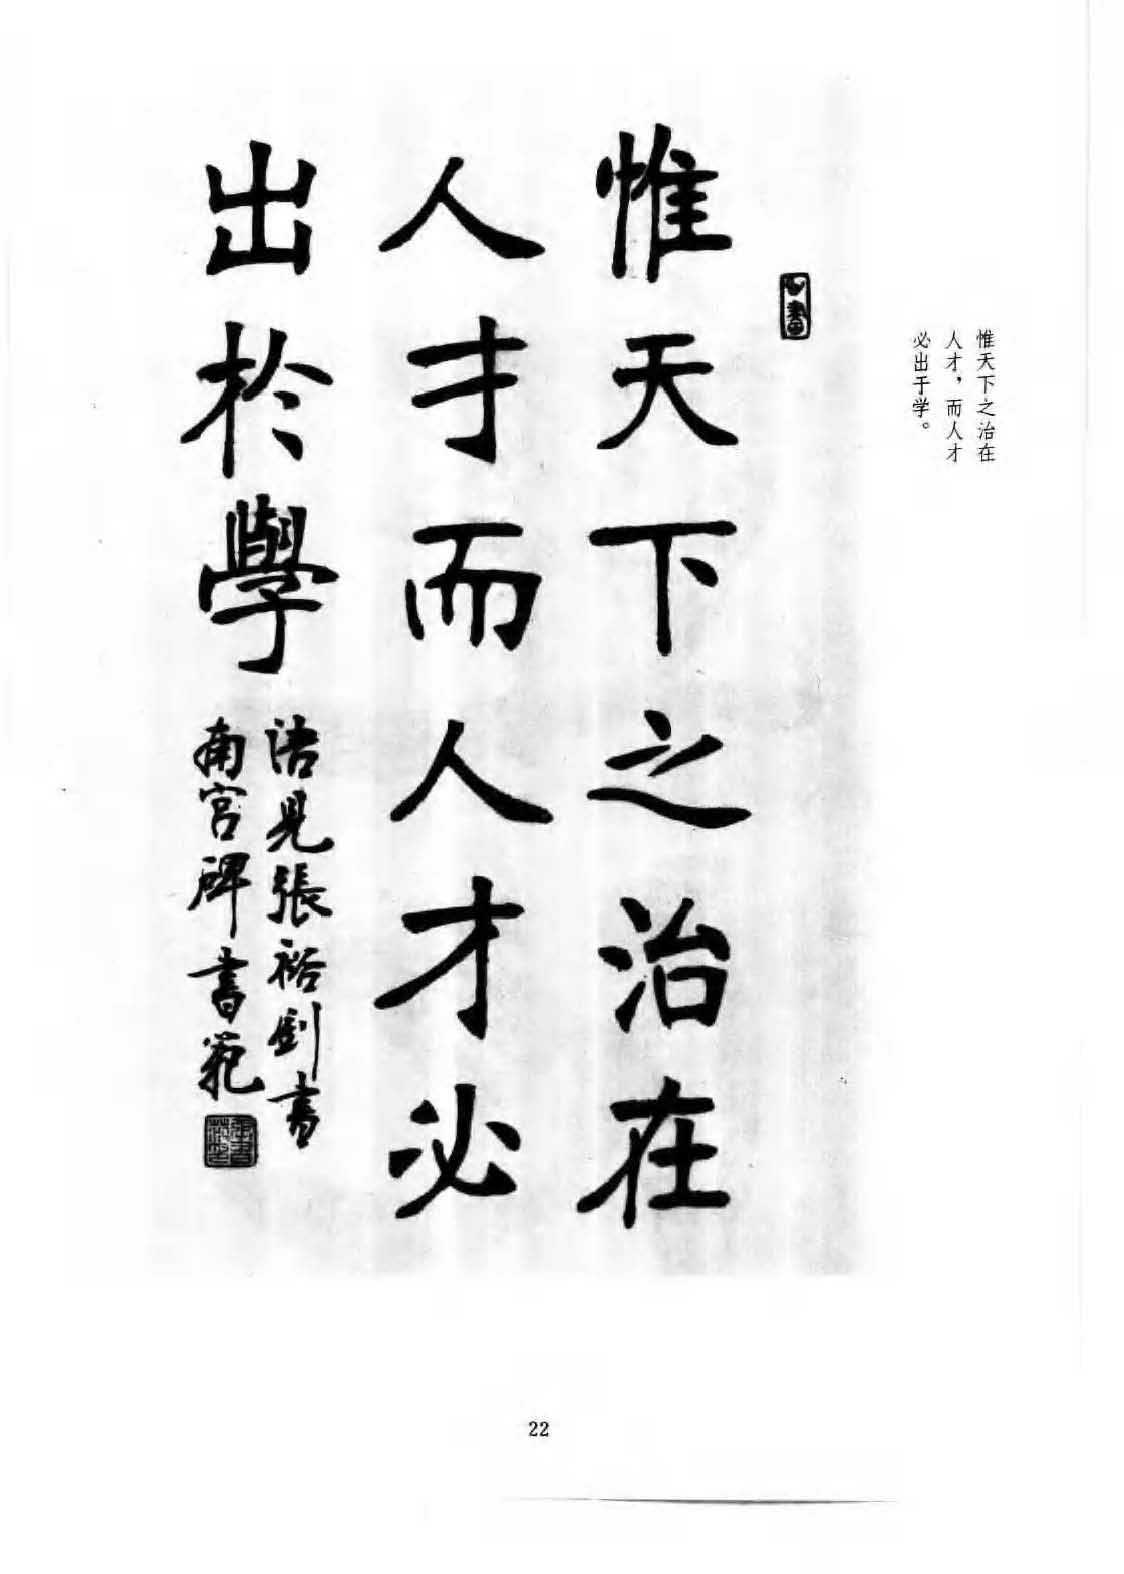 惟天下之治在
人才，而人才
必出于学。
惟天下之治在
人才而人才必
出於學
語見張裕釗書
南宮碑書範
22